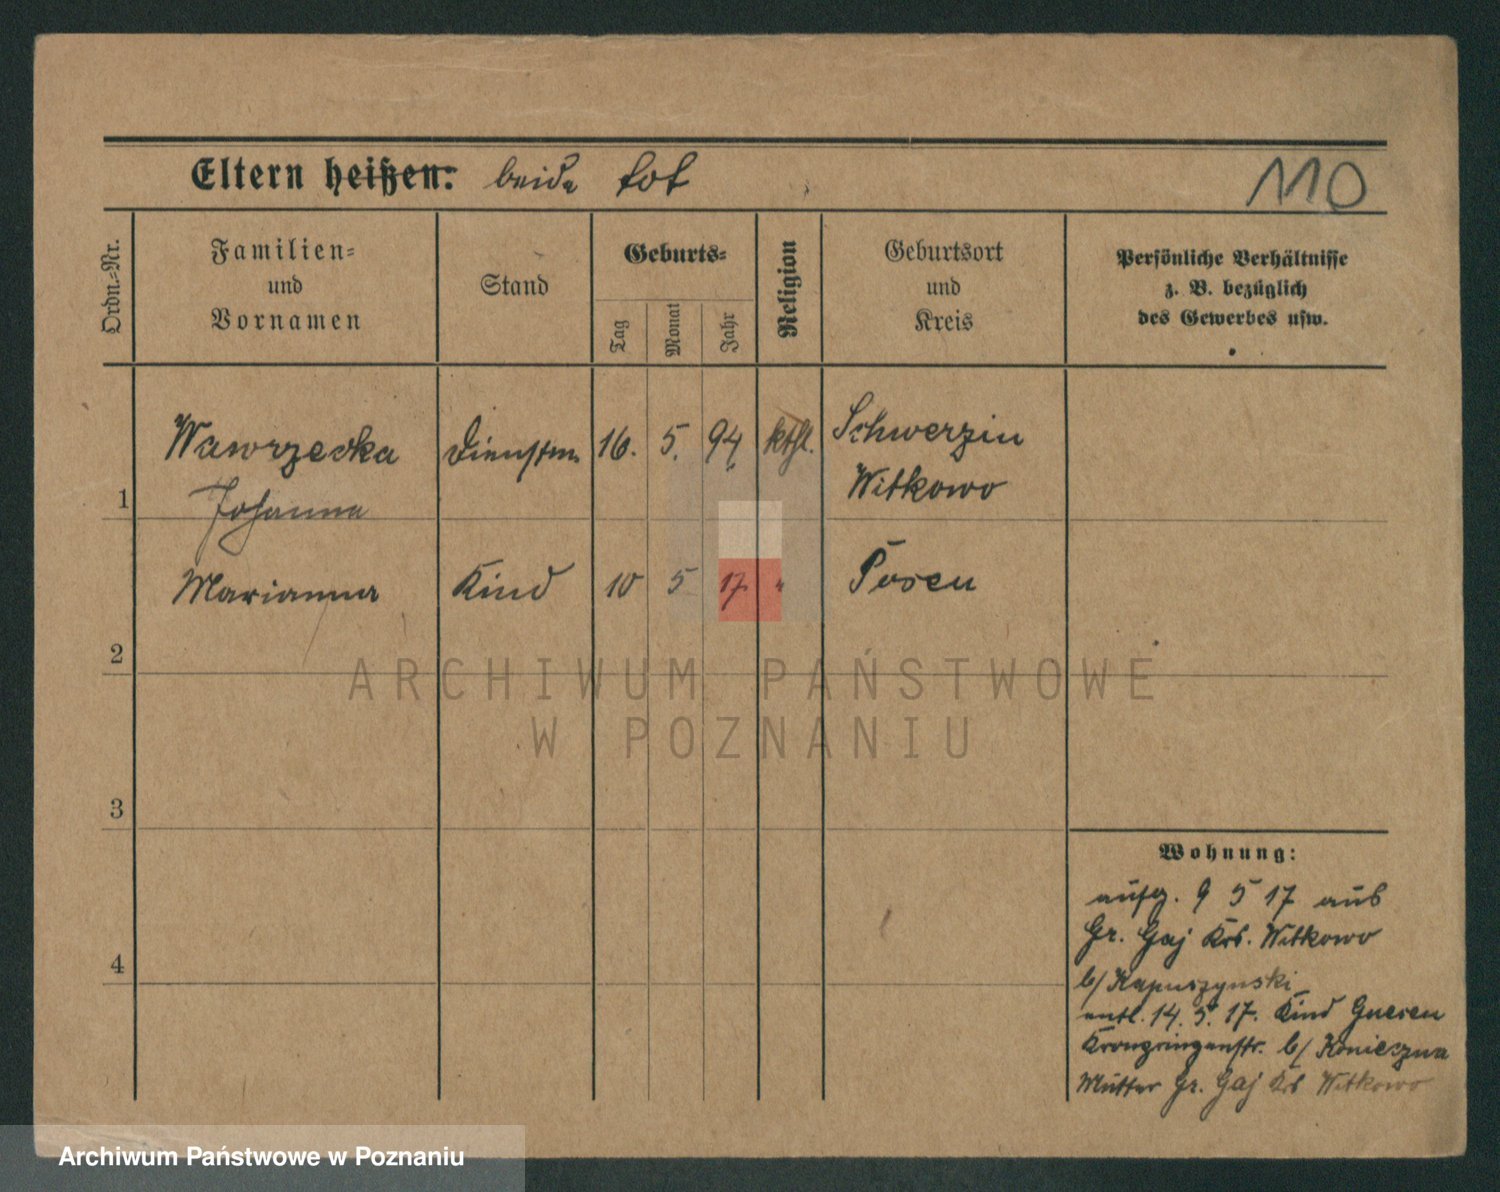 Eltern heißen: beide tot
110
Ordn.-Nr.
Familien-
und
Vornamen
Stand
Geburts-
Tag
Monat
Jahr
Religion
Geburtsort
und
Kreis
Persönliche Verhältnisse
z. B. bezüglich
des Gewerbes usw.
1
Wawrzecka
Johanna
Dienstm.
16. 5. 94
kthl.
Schwerzin
Witkowo
2
Marianna
Kind
10 5 17
"
Posen
3
4
Wohnung:
aufg. 9 5 17 aus
Gr. Gaj Krs. Witkowo
b/ Kapuszynski
entl. 14. 5. 17. Kind Gnesen
Kronprinzenstr. b/ Konieczna
Mutter Gr. Gaj Krs Witkowo
ARCHIWUM PAŃSTWOWE
W POZNANIU
Archiwum Państwowe w Poznaniu